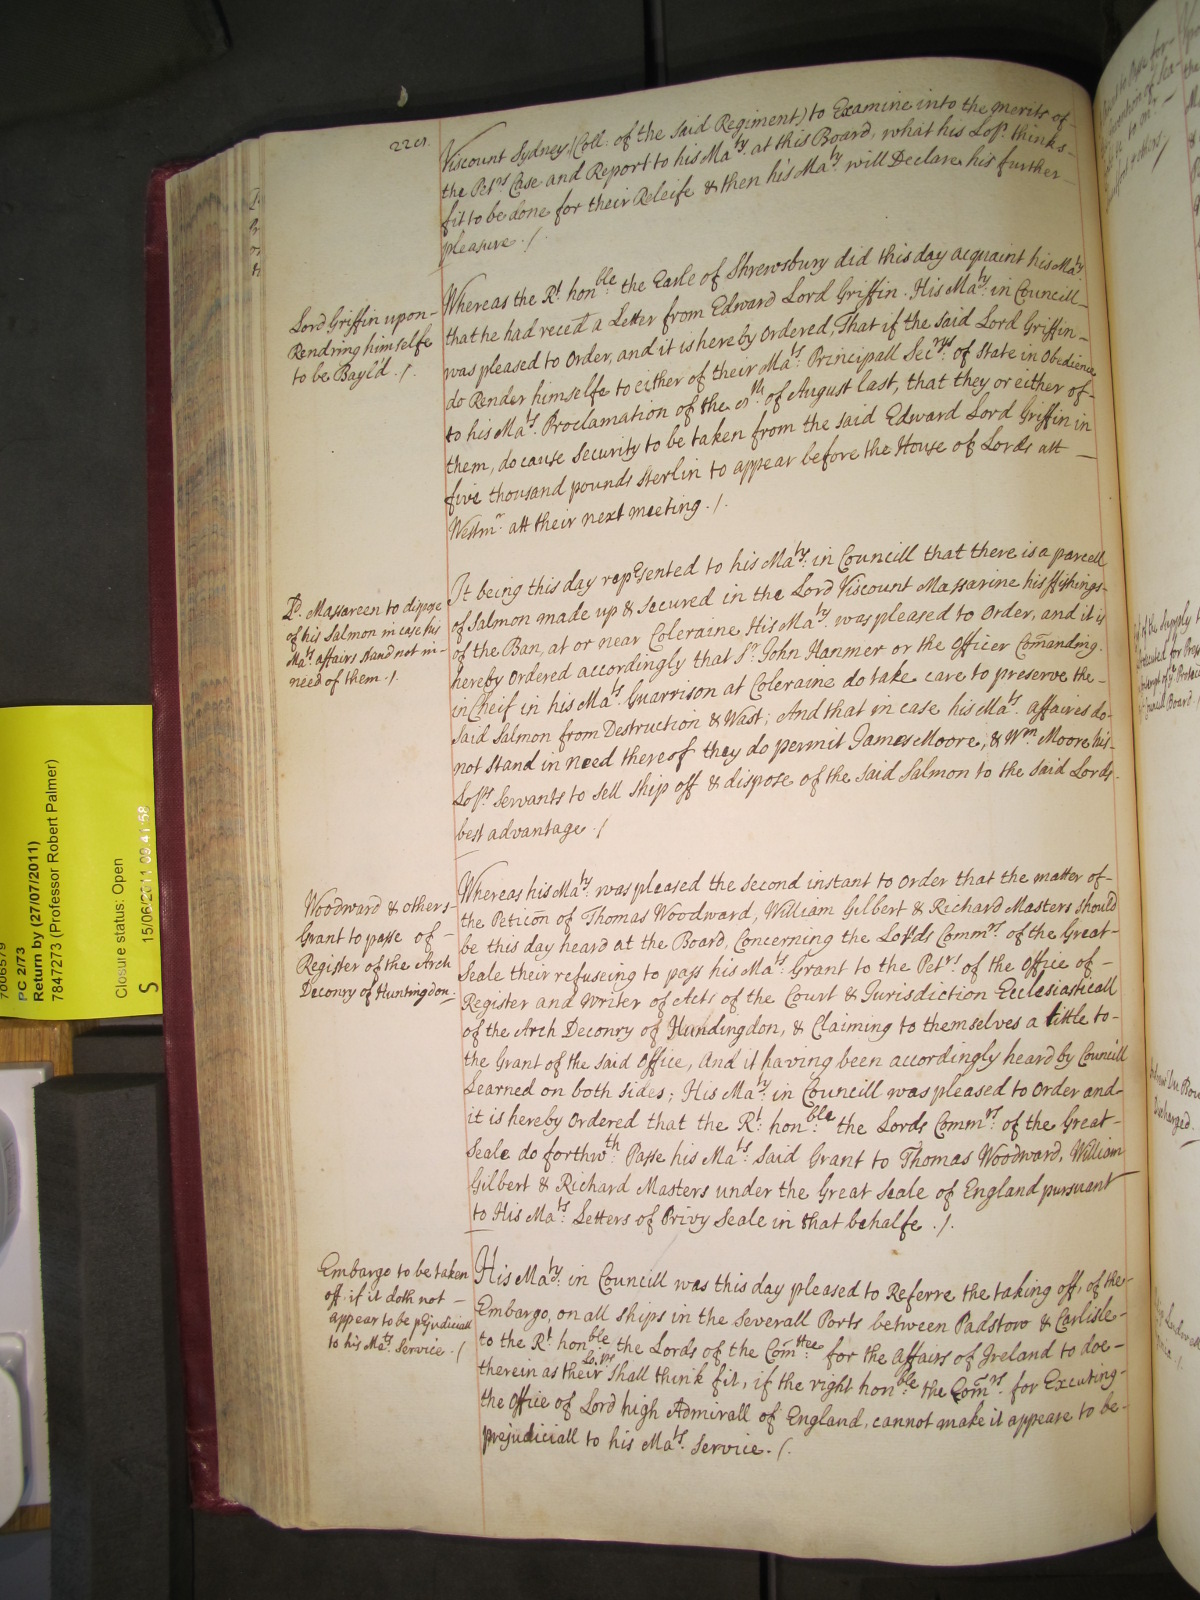 Viscount Sydney (Coll: of the said Regiment) to Examine into the merits of
the Petrs Case and Report to his Maty at this Board, what his Lopp thinks
fit to be done for their Releife & then his Maty will Declare his further
pleasure ./
Lord Griffin upon
Rendring himselfe
to be Bayl'd ./.
Whereas the Rt honble the Earle of Shrewsbury did this day acquaint his Maty
that he had reced a Letter from Edward Lord Griffin. His Maty in Councill
was pleased to Order, and it is hereby Ordered, That if the said Lord Griffin
do Render himselfe to either of their Mats Principall Secrys of State in Obedience
to his Mats Proclamation of the th of August last, that they or either of
them, do cause Security to be taken from the said Edward Lord Griffin in
five thousand pounds sterlin to appear before the House of Lords att
Westmr att their next meeting ./.
Massareen to dispose
of his Salmon in case his
Mats affairs stand not in
need of them ./.
It being this day represented to his Maty in Councill that there is a parcell
of Salmon made up & secured in the Lord Viscount Massarine his ffishings
of the Ban, at or near Coleraine His Maty was pleased to Order, and it is
hereby Ordered accordingly that Sr John Hanmer or the Officer Comanding
in Cheif in his Mats Guarrison at Coleraine do take care to preserve the
said Salmon from Destruction & Wast; And that in case his Mats affaires do
not Stand in need thereof they do permit James Moore, & Wm Moore his
Lopps Servants to sell ship off & dispose of the said Salmon to the said Lords
best advantage ./
Woodward & others
Grant to passe of
Register of the Arch
Deconry of Huntingdon
Whereas his Maty was pleased the second instant to Order that the matter of
the Peticon of Thomas Woodward, William Gilbert & Richard Masters should
be this day heard at the Board, Concerning the Lords Commrs of the Great
Seale their refuseing to pass his Mats Grant to the Petrs of the Office of
Register and Writer of Acts of the Court & Jurisdiction Ecclesiasticall
of the Arch Deconry of Hundingdon, & Claiming to themselves a tittle to
the Grant of the said Office, And it having been accordingly heard by Councill
Learned on both sides; His Maty in Councill was pleased to Order and
it is hereby Ordered that the Rt honble the Lords Commrs of the Great
Seale do forthwth Passe his Mats said Grant to Thomas Woodward, William
Gilbert & Richard Masters under the Great Seale of England pursuant
to His Mats Letters of Privy Seale in that behalfe ./.
Embargo to be taken
off if it doth not
appear to be prejudiciall
to his Mats Service ./
His Maty in Councill was this day pleased to Referre the taking off, of the
Embargo, on all ships in the severall Ports between Padstow & Carlisle
to the Rt honble the Lords of the Comttee for the Affairs of Ireland to doe
therein as their Lopps shall think fit, if the right honble the Comrs for Executing
the Office of Lord high Admirall of England, cannot make it appeare to be
prejudiciall to his Mats Service ./.
PC 2/73
Return by (27/07/2011)
7847273 (Professor Robert Palmer)
Closure status: Open
S 15/06/2011 09:41:58